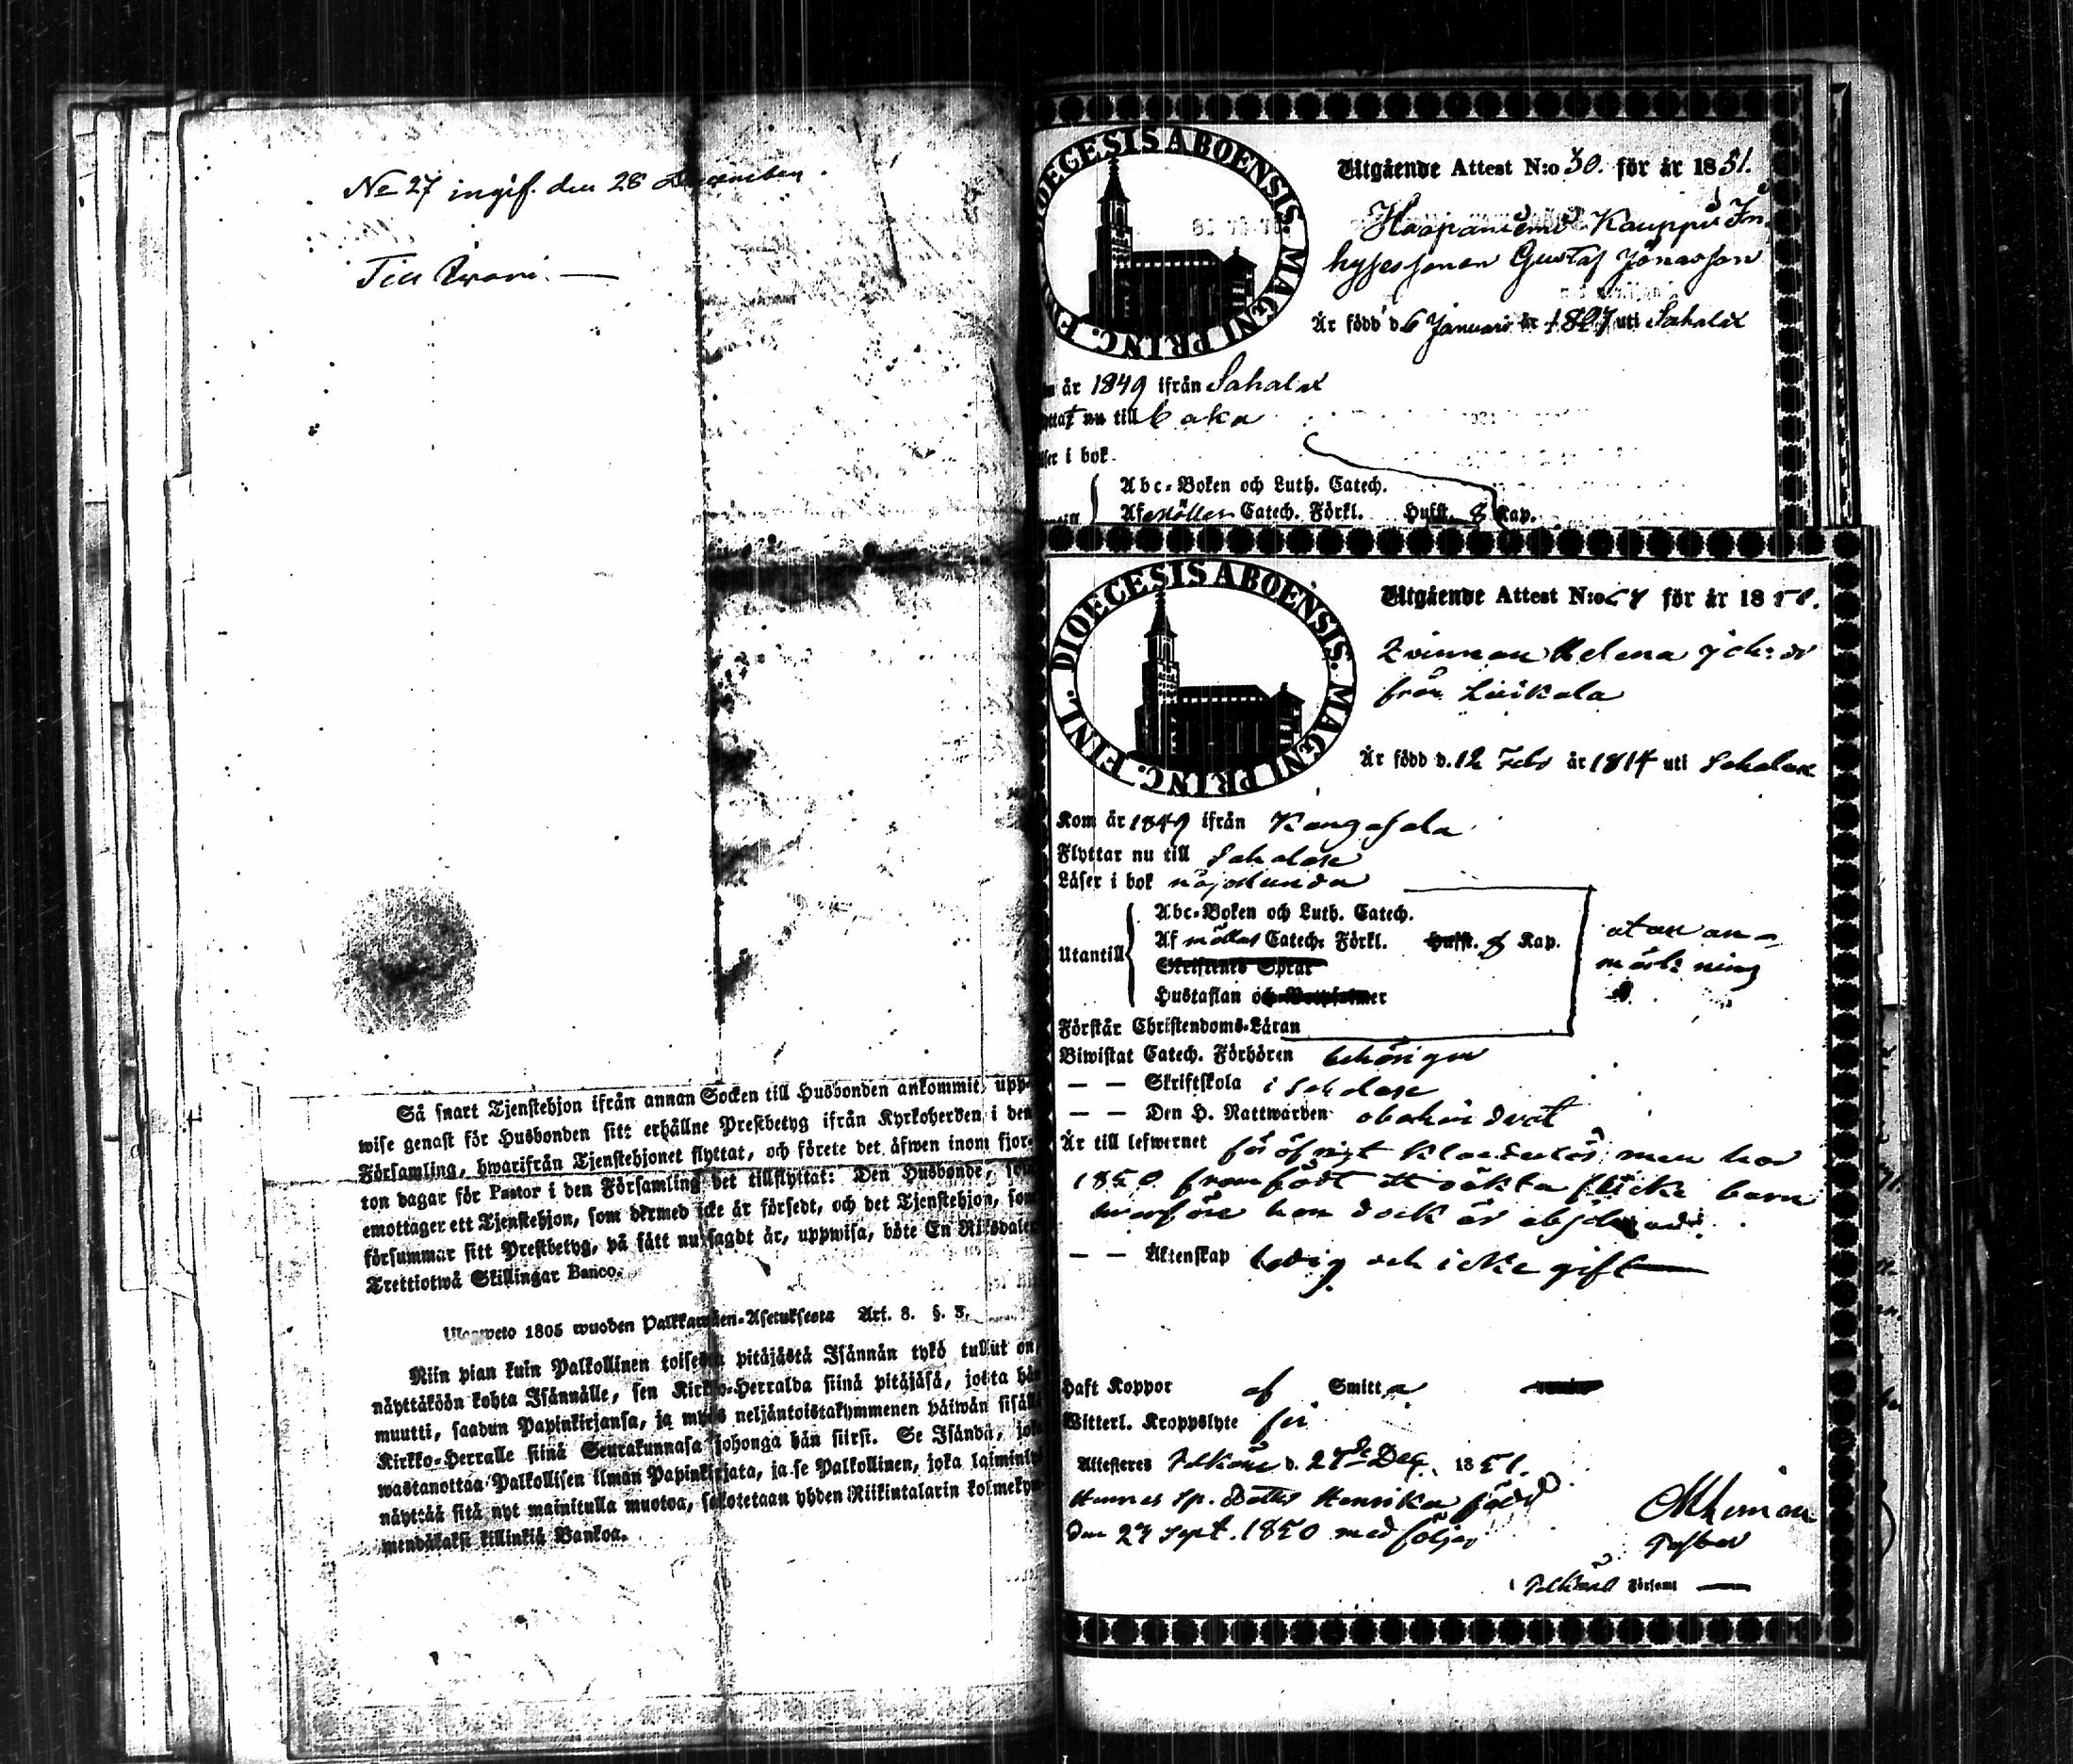 No 27 ingif. den 28 December
Till
Så snart Tjenstehjon ifrån annan Socken till Husbonden ankommit, upp-
wise genast för Husbonden sitt erhållne Prestbetyg ifrån Kyrkoherden i den
Församling, hwarifrån Tjenstehjonet flyttat, och förete det äfwen inom fjor-
ton dagar för Pastor i den Församling det tillflyttat: Den Husbonde, som
emottager ett Tjenstehjon, som dermed icke är försedt, och det Tjenstehjon, som
försummar sitt Prestbetyg, på sätt nu sagdt är, uppwisa, böte En Riksdaler
Trettiotwå Skillingar Banco.
Ulosweto 1805 wuoden Palkkawäen-Asetuksesta Art. 8. §. 3.
Niin pian kuin Palkollinen toisesta pitäjästä Isännän tykö tullut on,
näyttäköön kohta Isännälle, sen Kirkko-Herralda siinä pitäjäsä, josta hän
muutti, saadun Papinkirjansa, ja myös neljäntoistakymmenen päiwän sisällä
Kirkko-Herralle siinä Seurakunnasa johonga hän siirsi. Se Isändä, joka
wastanottaa Palkollisen ilman Papinkirjata, ja se Palkollinen, joka laiminlyö
näyttää sitä nyt mainitulla muotoa, sakotetaan yhden Riikintalarin kolmekym-
mendäkaksi killinkiä Bankoa.
DIOECESIS ABOENSIS. MAGNI PRINC. FINL.
Utgående Attest N:o 30. för år 1851.
Haapaniemi Kauppi In-
hysessonen Gustaf Jonasson
Är född d 6 Januari år 1827 uti Sahalax
år 1849 ifrån Sahalax
nu till
i bok
Abc-Boken och Luth. Catech.
Af Möllers Catech. Förkl. Husst. 8 Kap.
DIOECESIS ABOENSIS. MAGNI PRINC. FINL.
Utgående Attest N:o för år 18
Qvinnan Helena
från Liikala
Är född d. 12 Febr år 1814 uti Sahalax
Kom år 1849 ifrån Kangasala
Flyttar nu till Sahalax
Läser i bok nöjaktunda
Abc-Boken och Luth. Catech.
Utantill Af Möllers Catech. Förkl. Husst. 8 Kap.
utan an-
märkning
Skriftenes Språk
Hustaflan och
Förstår Christendoms-Läran
Biwistat Catech. Förhören behörigen
— — Skriftskola i Sahalax
— — Den H. Nattwarden obehindrat
Är till lefwernet för öfrigt klanderlös, men har
1850 framfödt ett oäkta flicke barn
hvarföre hon dock är
— — Äktenskap ledig och icke gift
Haft Koppor af Smitta
Witterl. Kroppslyte fri
Attesteres Pelkäne d. 27de Dec. 1851.
Hennes sp. dotter Henrika född
den 27 Sept. 1850 medföljer
Pastor
i Pelkäne Församl